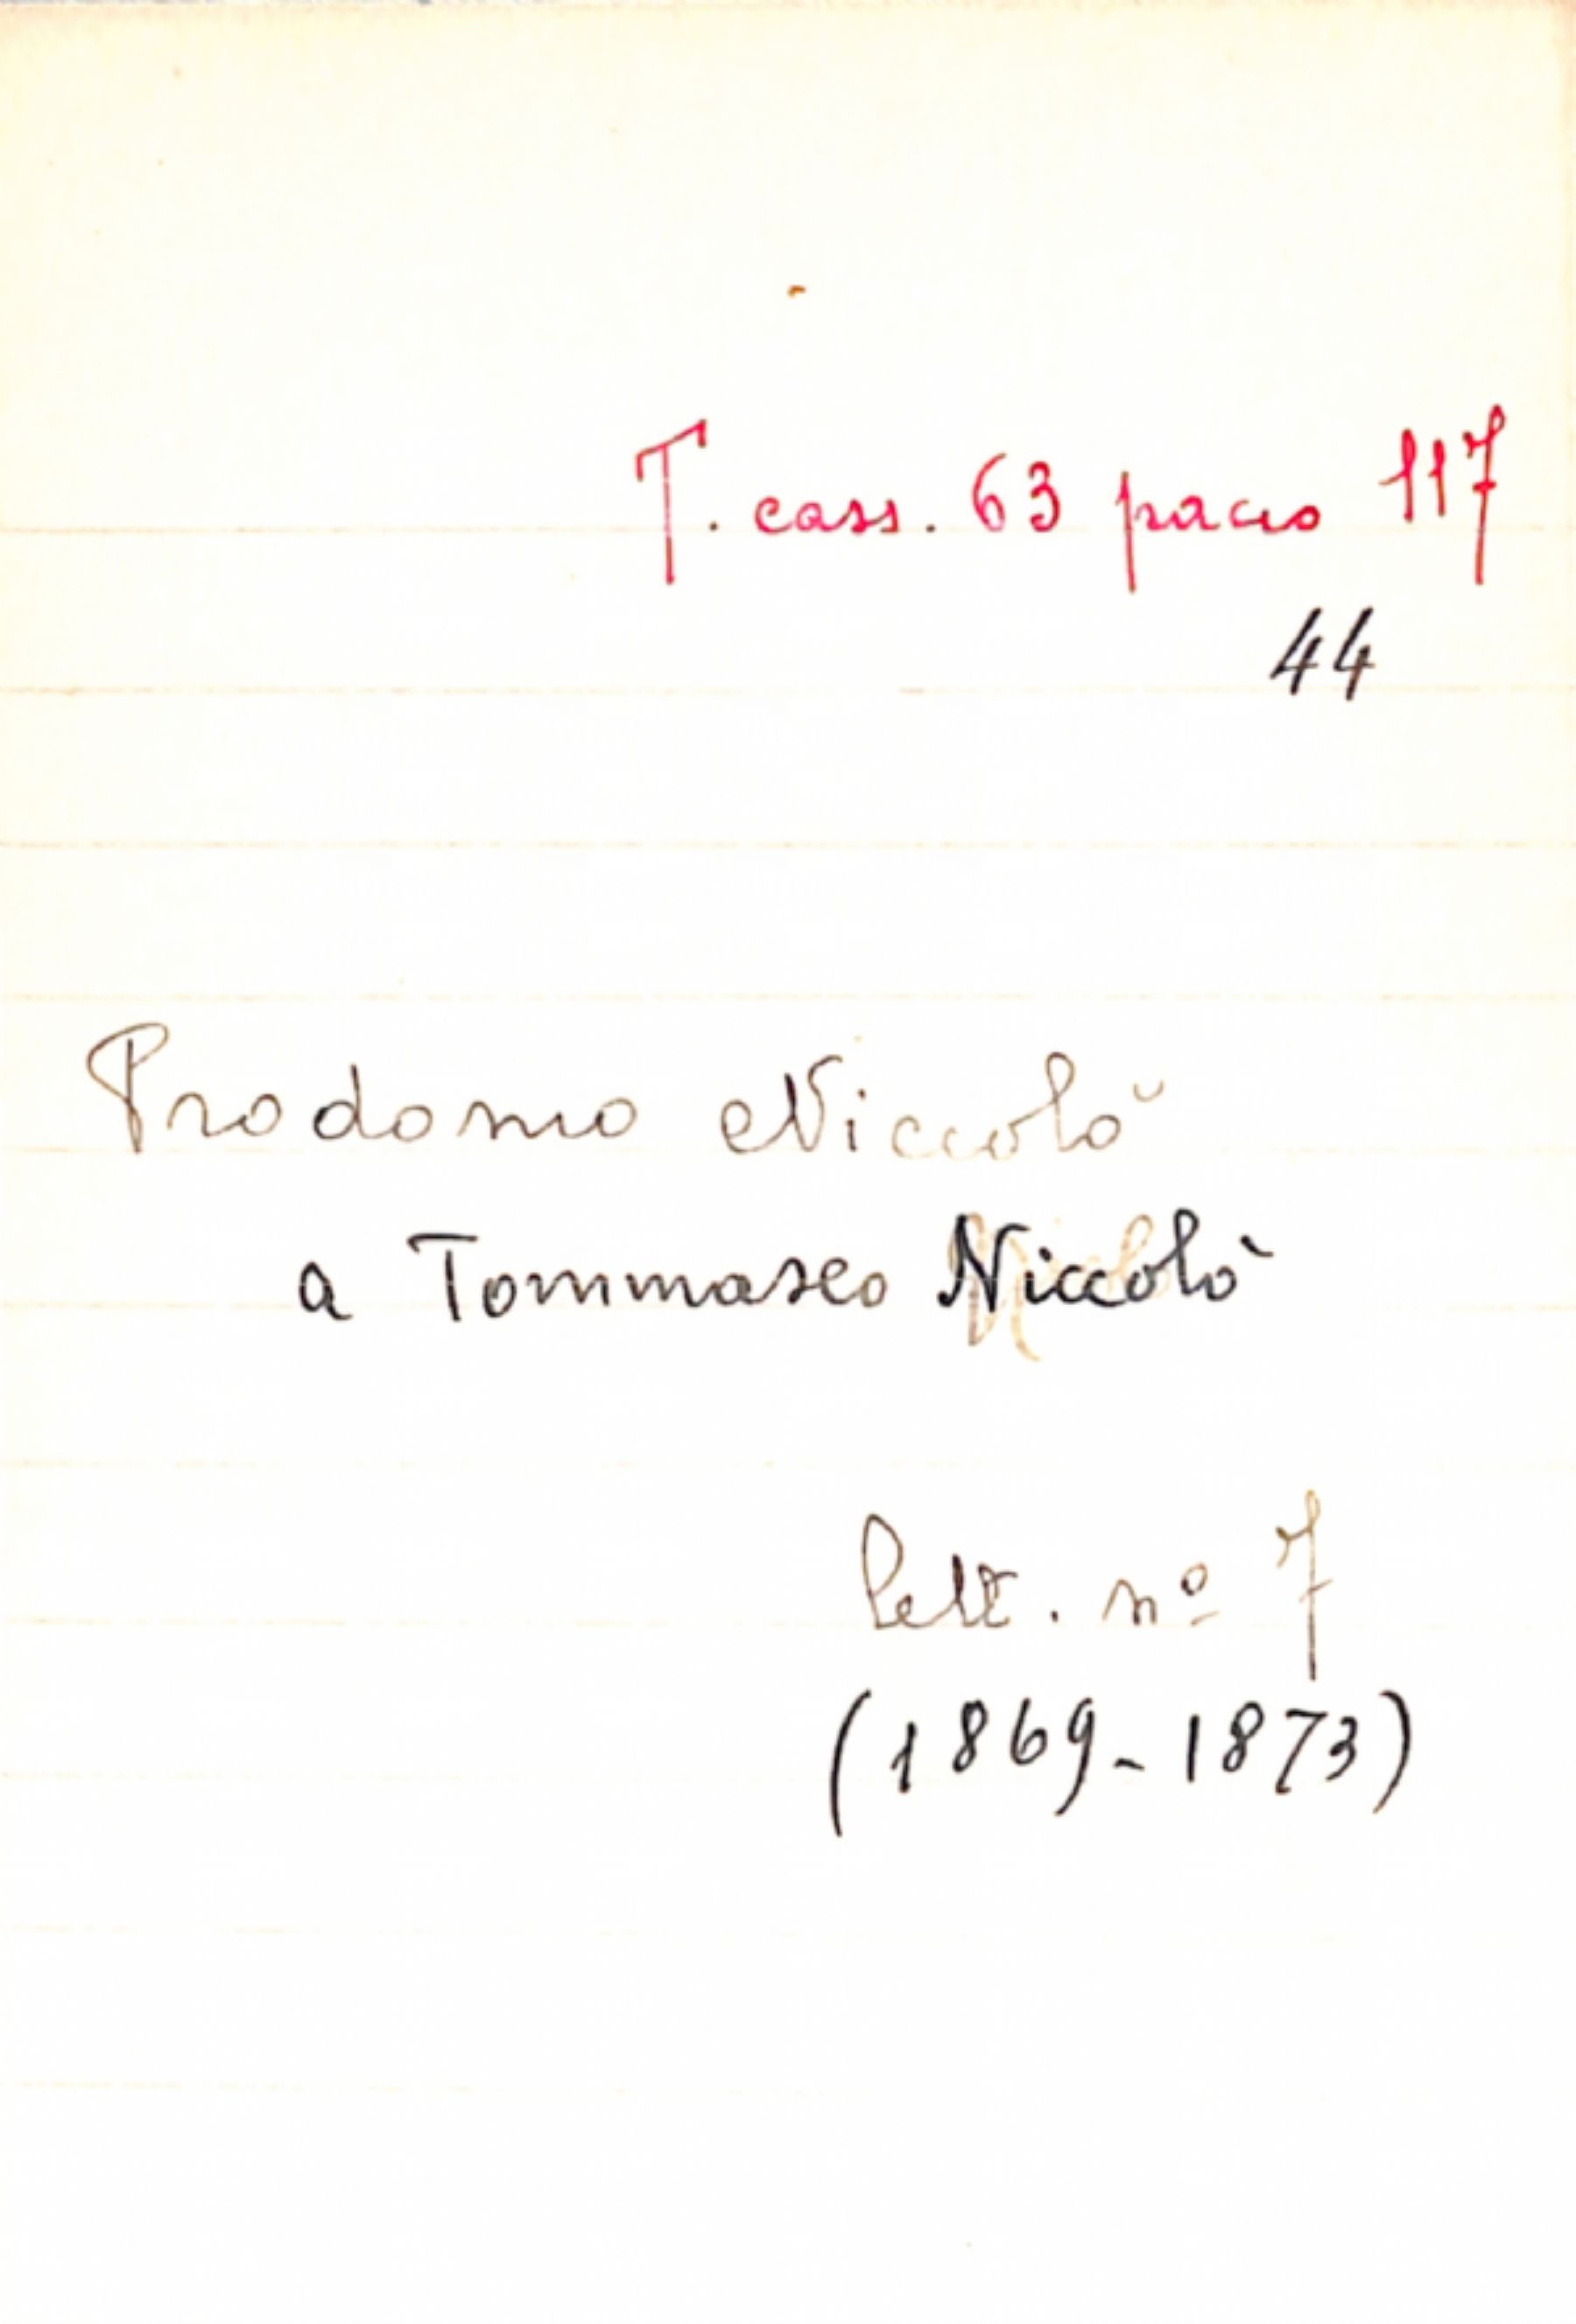 T. cass. 63 pacco 117
44
Prodomo Niccolò
a Tommaseo Niccolò
lett. nº 7
(1869-1873)